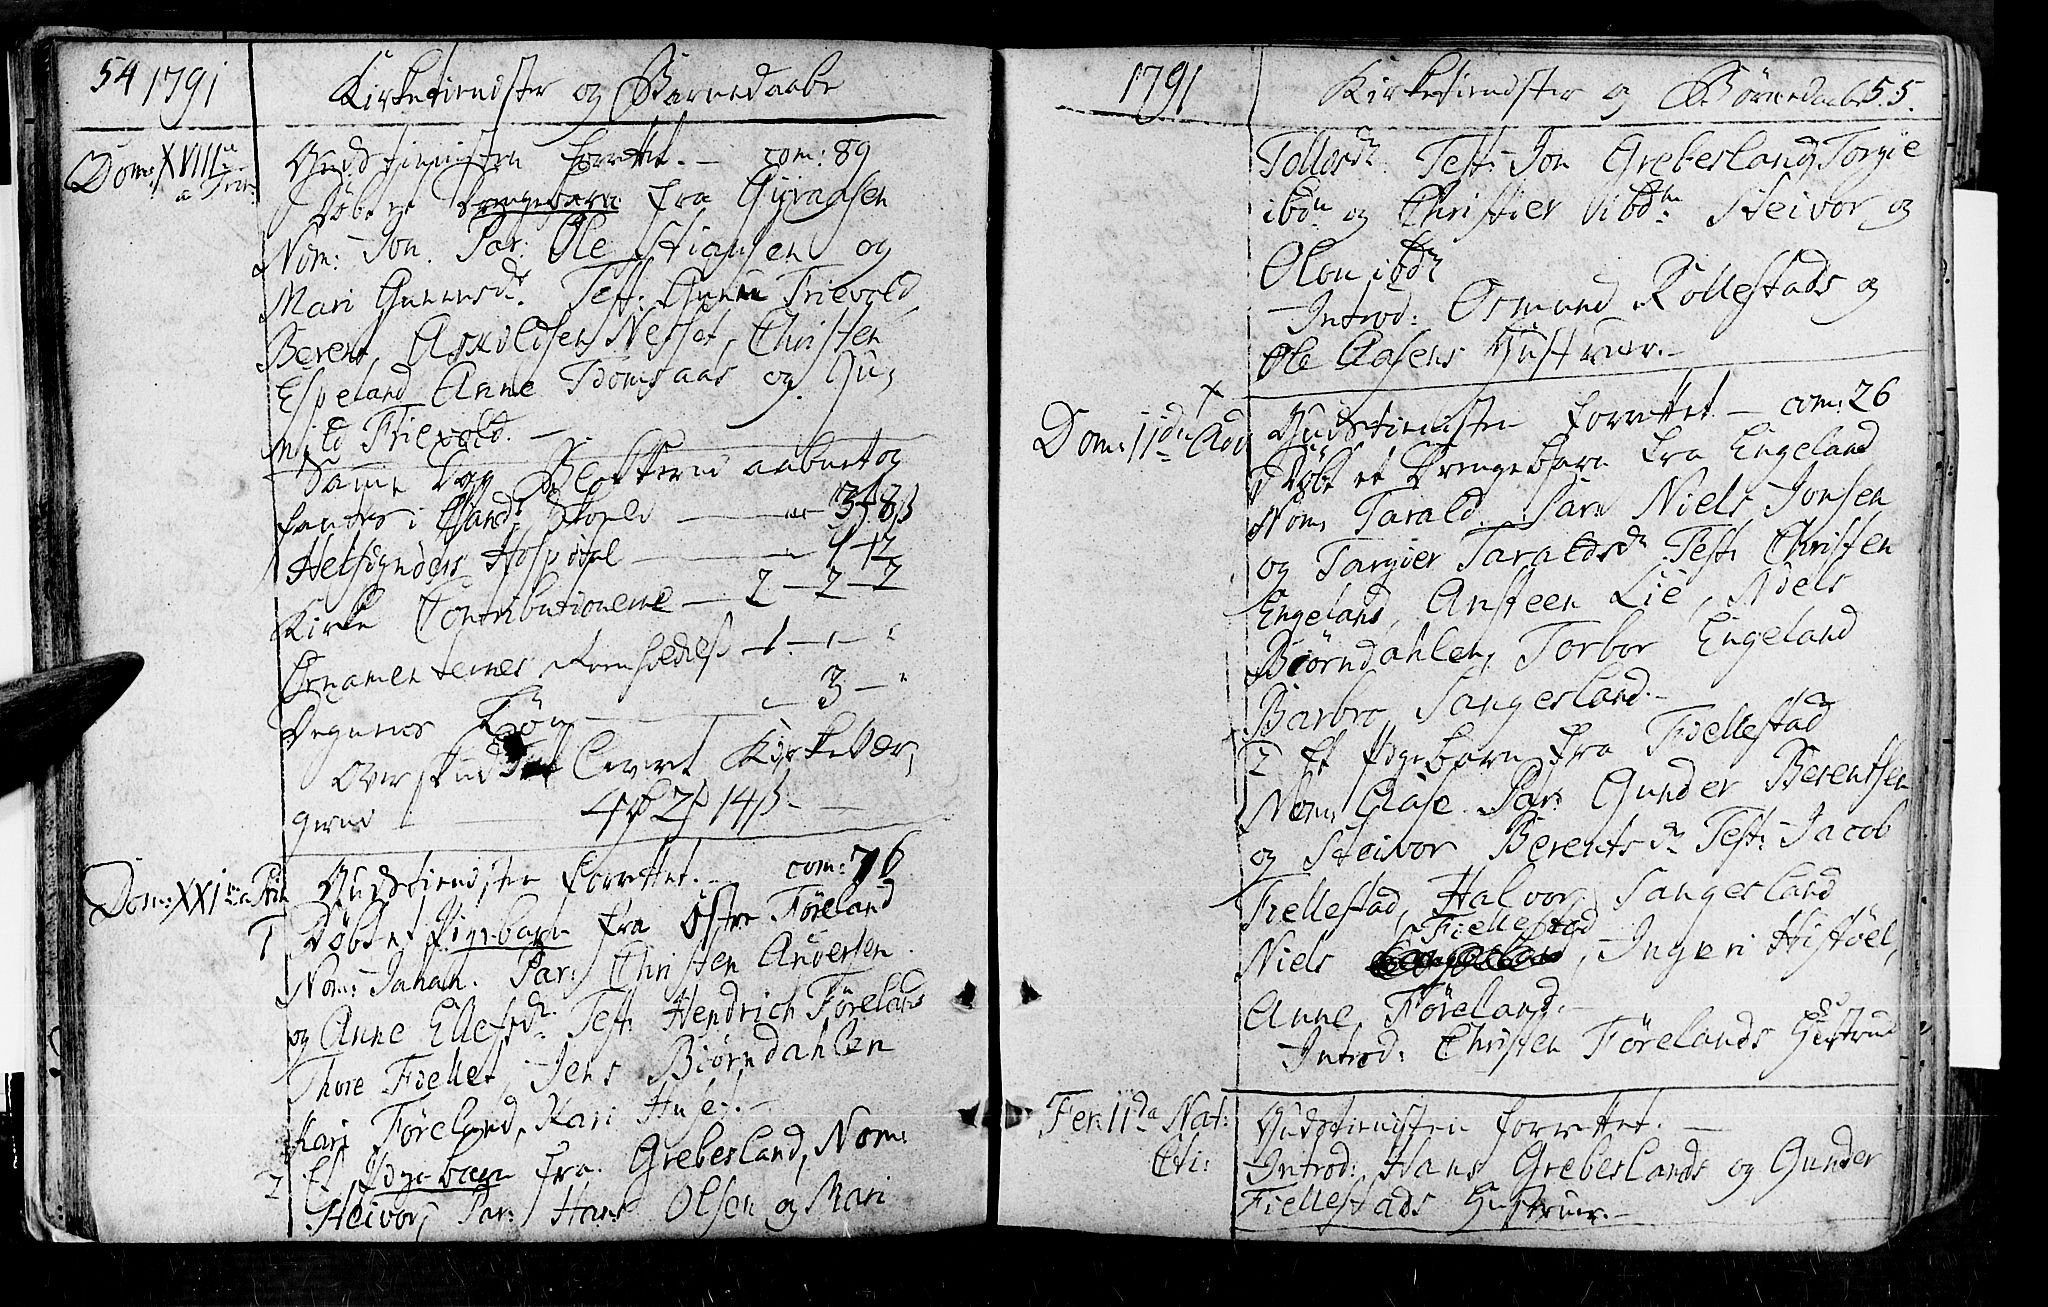 54 1791
Kirketienister og Barnedaabe
Dom: XVIII a Trin:
Gudstienisten forrettet. — com: 89
Döbt et Drengebarn fra Gyvaasen
Nom: Jon. Par: Ole Stiansen og
Mari Gunersdr. Test: Gune Trievold,
Berent Askoldsen Nesset, Christen
Espeland Anne Tomsaas og Gu,
nild Trievold. —
Samme Dag Blokkerne aabnet og
fantes i
Hospital — 1 — 12
Kirke Contributionerne — 2 — 2 — 2
Ornamenternes — 1 — " — "
Degnens Lön — 3 — "
Overskudet Leveret Kirkevær,
gerne 4 2 14ß —
Dom: XXI a Trin
Gudstienisten forrettet. — com: 76
1 Döbt et Pigebarn fra Östre Föreland
Nom: Johan. Par: Christen Andersen
og Anne Ellefsdr. Test: Hendrich Förelands
Thore Fiellet, Jens Biörndahlen
Kari Föreland, Kari —
2 Et Pigebarn fra Greberland, Nom:
Steivor, Par: Hans Olsen og Mari
1791
Kirketienister og Börnedaabe 55.
Tollefsdr. Test: Jon Greberland, Torgie
ibdm og Christier ibdm Steivor og
Olou ibdm
Introd: Osmund Rollestads og
Ole Aasens Hustruer. —
Dom: II du Adv
x
Gudstienisten forrettet — com: 26
1 Döbt et Drengebarn fra Engeland
Nom, Tarald. Par: Niels Jonsen
og Targier Taraldsdr. Test: Christen
Engeland, Ansteen Lie, Niels
Biörndahlen, Torbor Engeland
Barbro Sangesland. —
2 Et Pigebarn fra Fiellestad
Nom, Aase. Par: Gunder Berentsen
og Steivor Berentsdr. Test: Jacob
Fiellestad, Halvor Sangesland
Fiellestad
Niels, Ingeri Histöel,
Anne Föreland. —
Introd: Christen Förelands Hustrue
Fer: II da Nat: Chi:
Gudstienisten forrettet. —
Introd: Hans Greberlands og Gunder
Fiellestads Hustruer. —